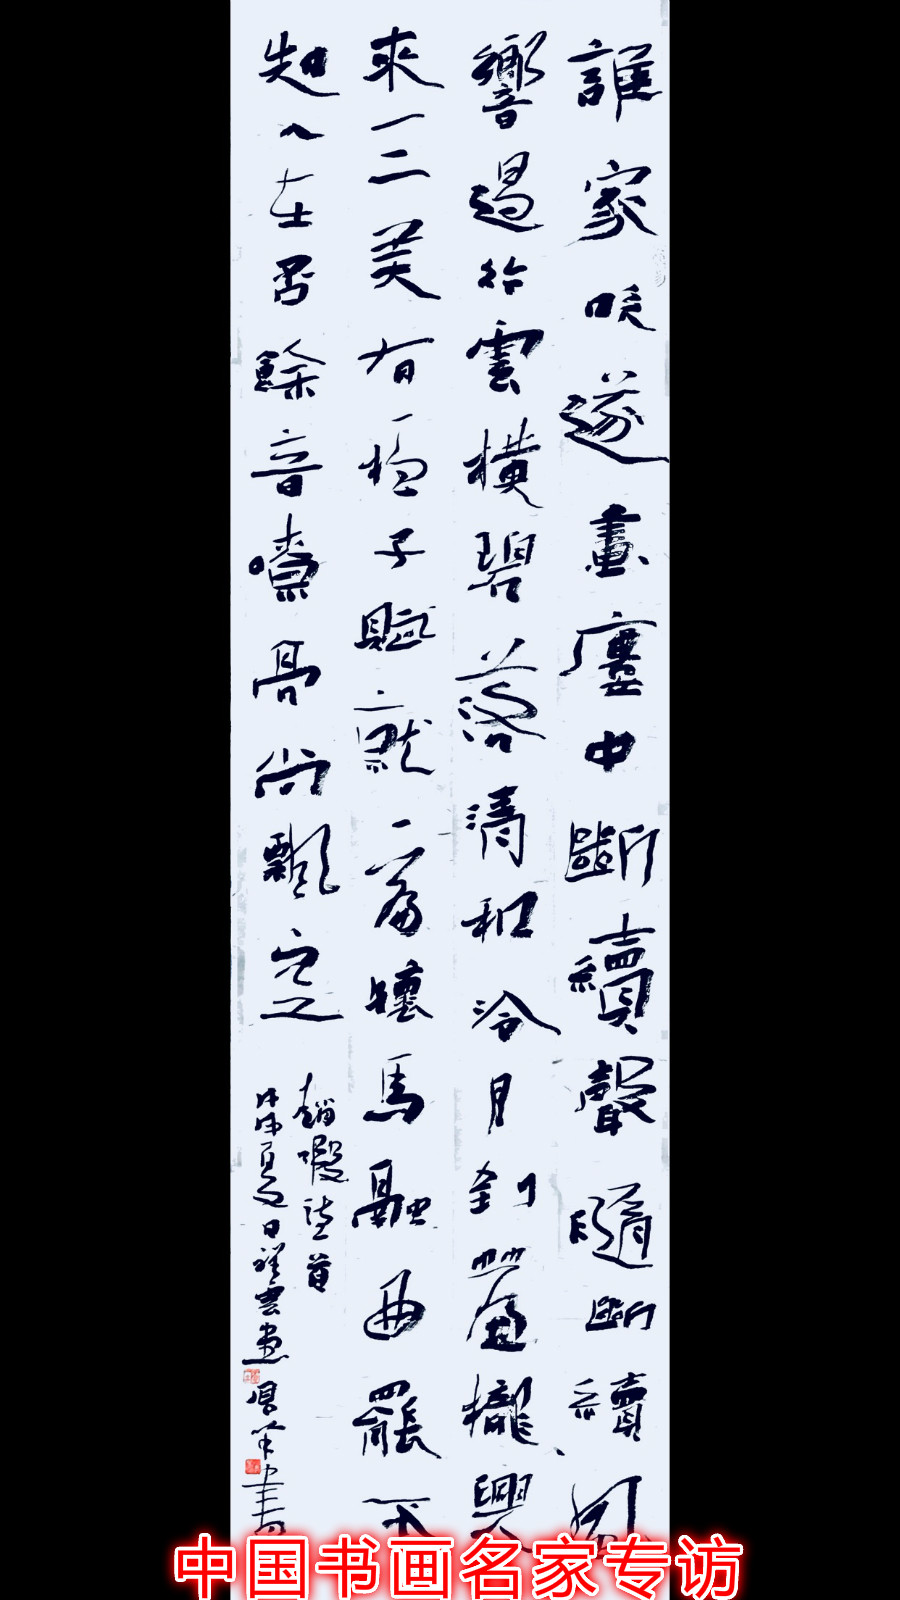 誰家吹篴畫廔中斷續聲隨斷續風
響遏行雲橫碧落清和冷月到簾櫳興
來三弄有桓子賦就一篇懷馬融曲罷不
知人在否餘音嘹亮尚飄空
趙嘏詩一首
戊戌夏日祥雲書
中国书画名家专访